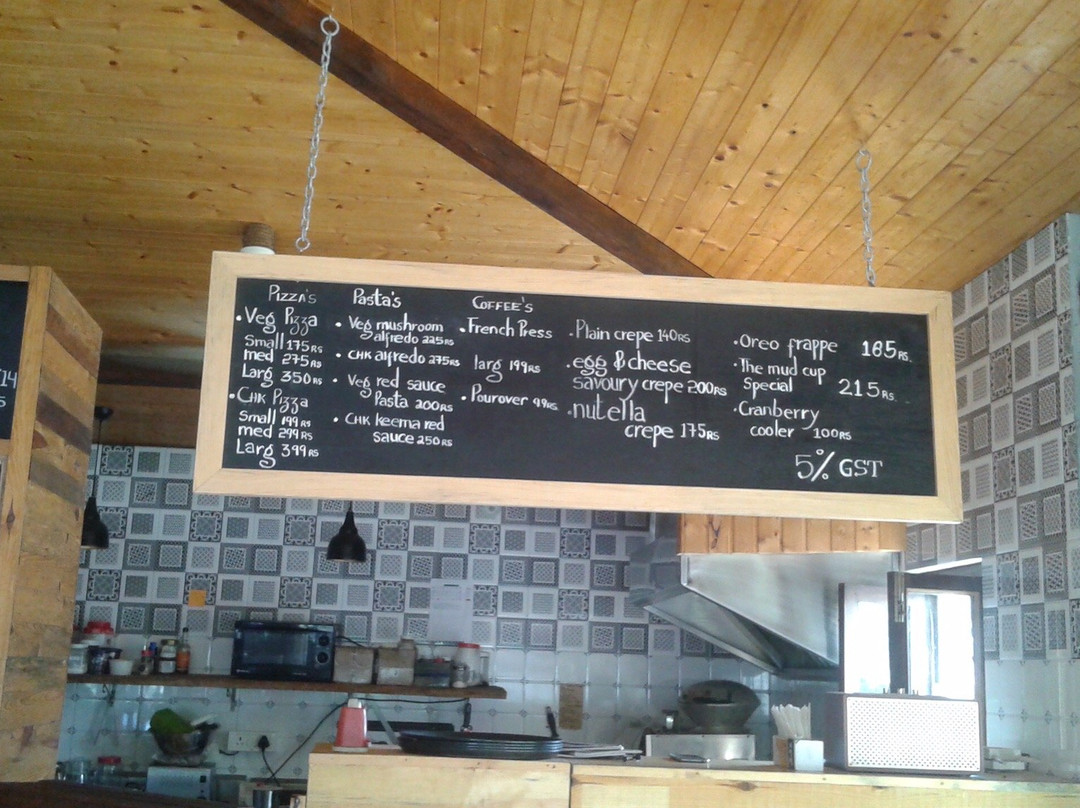 Pizza's
• Veg Pizza
Small 175 RS
med 275 RS
Larg 350 RS
• CHK Pizza
Small 199 RS
med 299 RS
Larg 399 RS
Pasta's
• Veg mushroom
alfredo 225 RS
• CHK alfredo 275 RS
• Veg red sauce
Pasta 200 RS
• CHK keema red
sauce 250 RS
COFFEE'S
• French Press
larg 199 RS
• Pourover 99 RS
• Plain crepe 140 RS
• egg & cheese
savoury crepe 200 RS
• nutella
crepe 175 RS
• Oreo frappe 185 RS.
• The mud cup
Special 215 RS.
• Cranberry
cooler 100 RS
5% GST